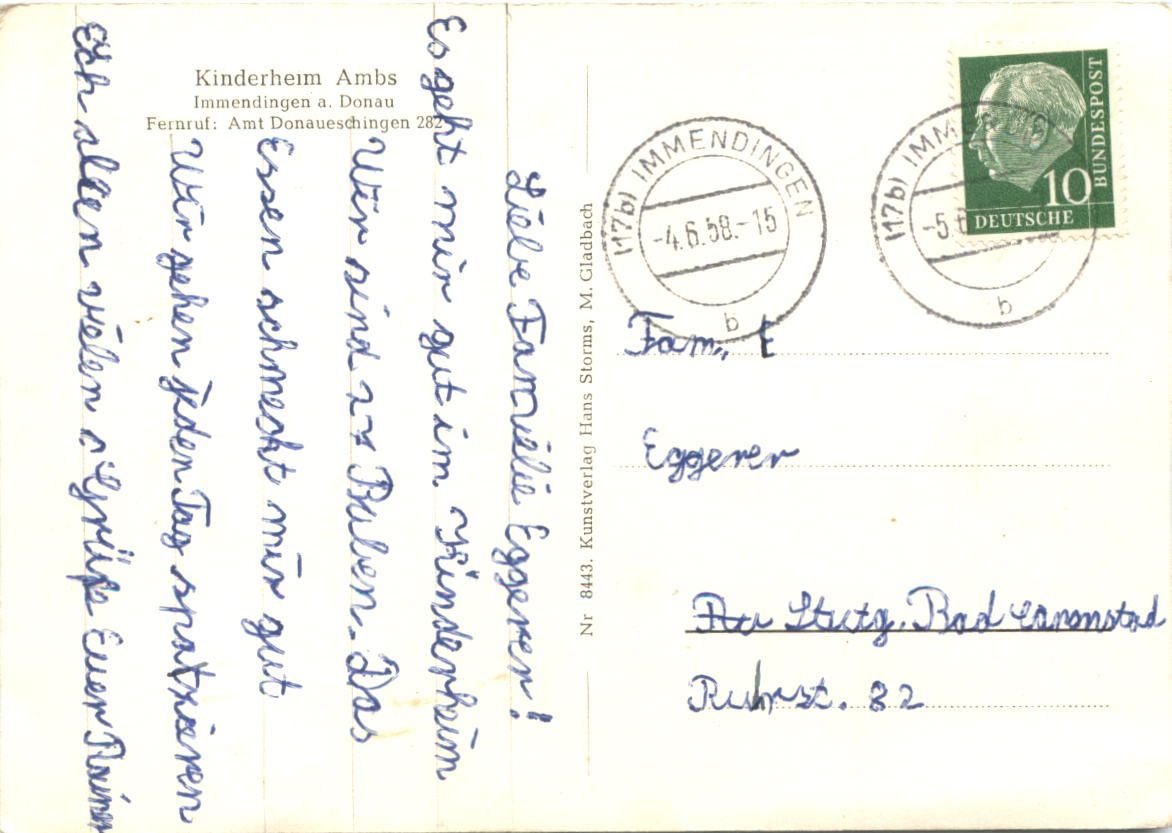 Kinderheim Ambs
Immendingen a. Donau
Fernruf: Amt Donaueschingen 282
Liebe Familie Eggerer!
Es geht mir gut im Kinderheim
Wir sind 27 Buben. Das
Essen schmeckt mir gut
Wir gehen jeden Tag spatzieren
Ich allen vielen Grüße Euer Rainer
Nr 8443. Kunstverlag Hans Storms, M. Gladbach
(17b) IMMENDINGEN
-4.6.58.-15
b
(17b) IMMENDINGEN
-5.6
b
10
DEUTSCHE
BUNDESPOST
Fam. E
Eggerer
Stutg. Bad Cannstad
Ruhrst. 32